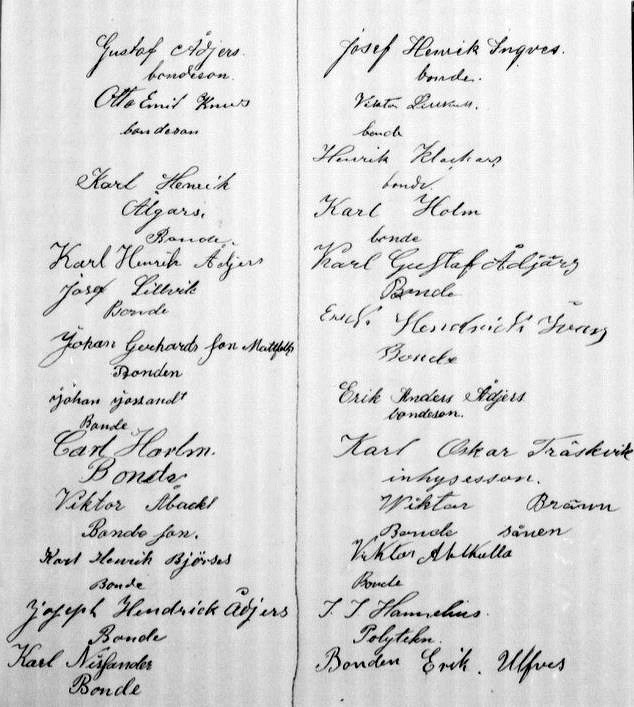 Gustaf Ådjers.
bondeson.
Otto Emil Knuus
bondeson
Karl Henrik
Älgars.
Bonde.
Karl Henrik Ådjers
Josef Lillvik
Bonde
Johan Gerhards son Mattfolk
Bonden
Johan
Bonde
Carl Holm.
Bonde
Viktor Åback
Bonde son.
Karl Henrik Björses
Bonde
Joseph Hendrick Ådjers
Bonde
Karl Nissander
Bonde
Josef Henrik Ingves.
bonde.
Viktor
bonde
Henrik Klockars
bonde.
Karl Holm
bonde
Karl Gustaf Ådjärs
Bonde
Erick Hendrick Ivars
Bonde
Erik Anders Ådjers
bondeson.
Karl Oskar Träskvik
inhysesson.
Wiktor Bränn
Bonde sånen
Viktor Abbkulla
Bonde
J. J. Hannelius.
Polytekn.
Bonden Erik. Ulfves